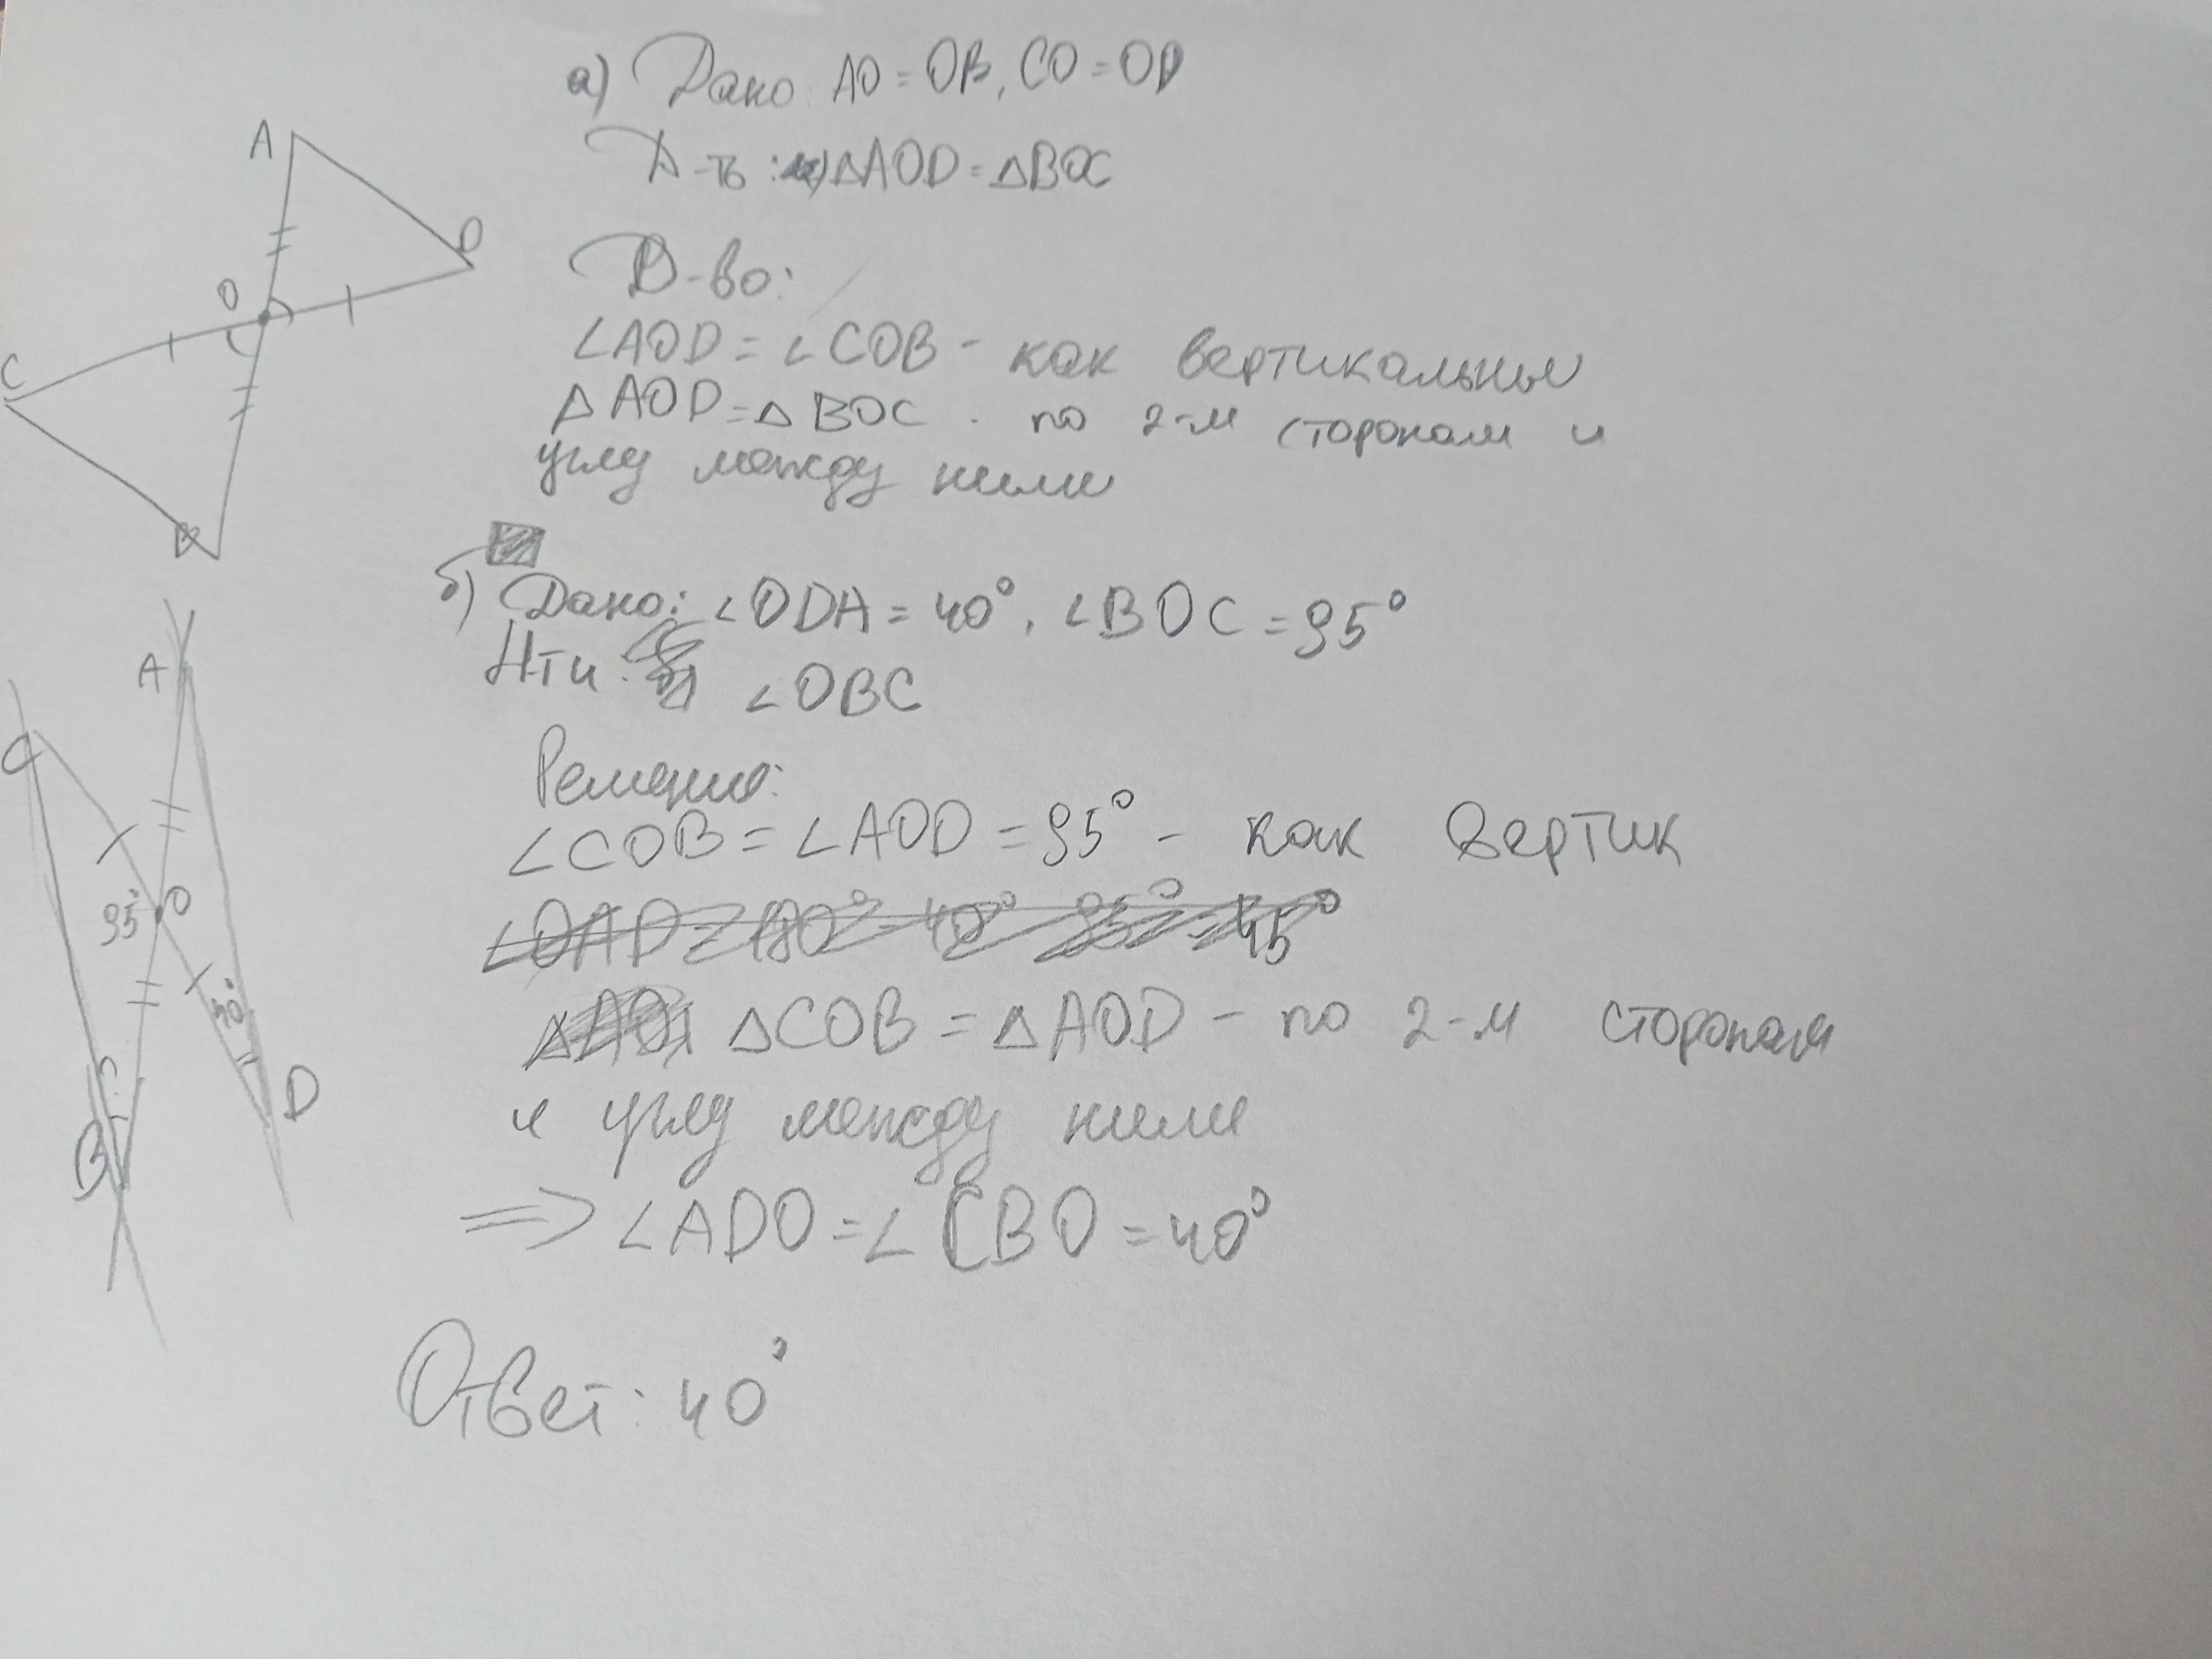 а) Дано AO = OB, CO = OD
Д-ть: △AOD = △BOC
Д-во:
∠AOD = ∠COB - как вертикальные
△AOD = △BOC . по 2-м сторонам и
углу между ними
A
D
O
C
B
б) Дано: ∠ODA = 40°, ∠BOC = 95°
Н-ти: ∠OBC
Решение:
∠COB = ∠AOD = 95° - как вертик
∠OAD = 180° - 40° - 95° = 45°
△COB = △AOD - по 2-м сторонам
и углу между ними
⇒ ∠ADO = ∠CBO = 40°
Ответ: 40°
A
C
95° O
40°
D
B